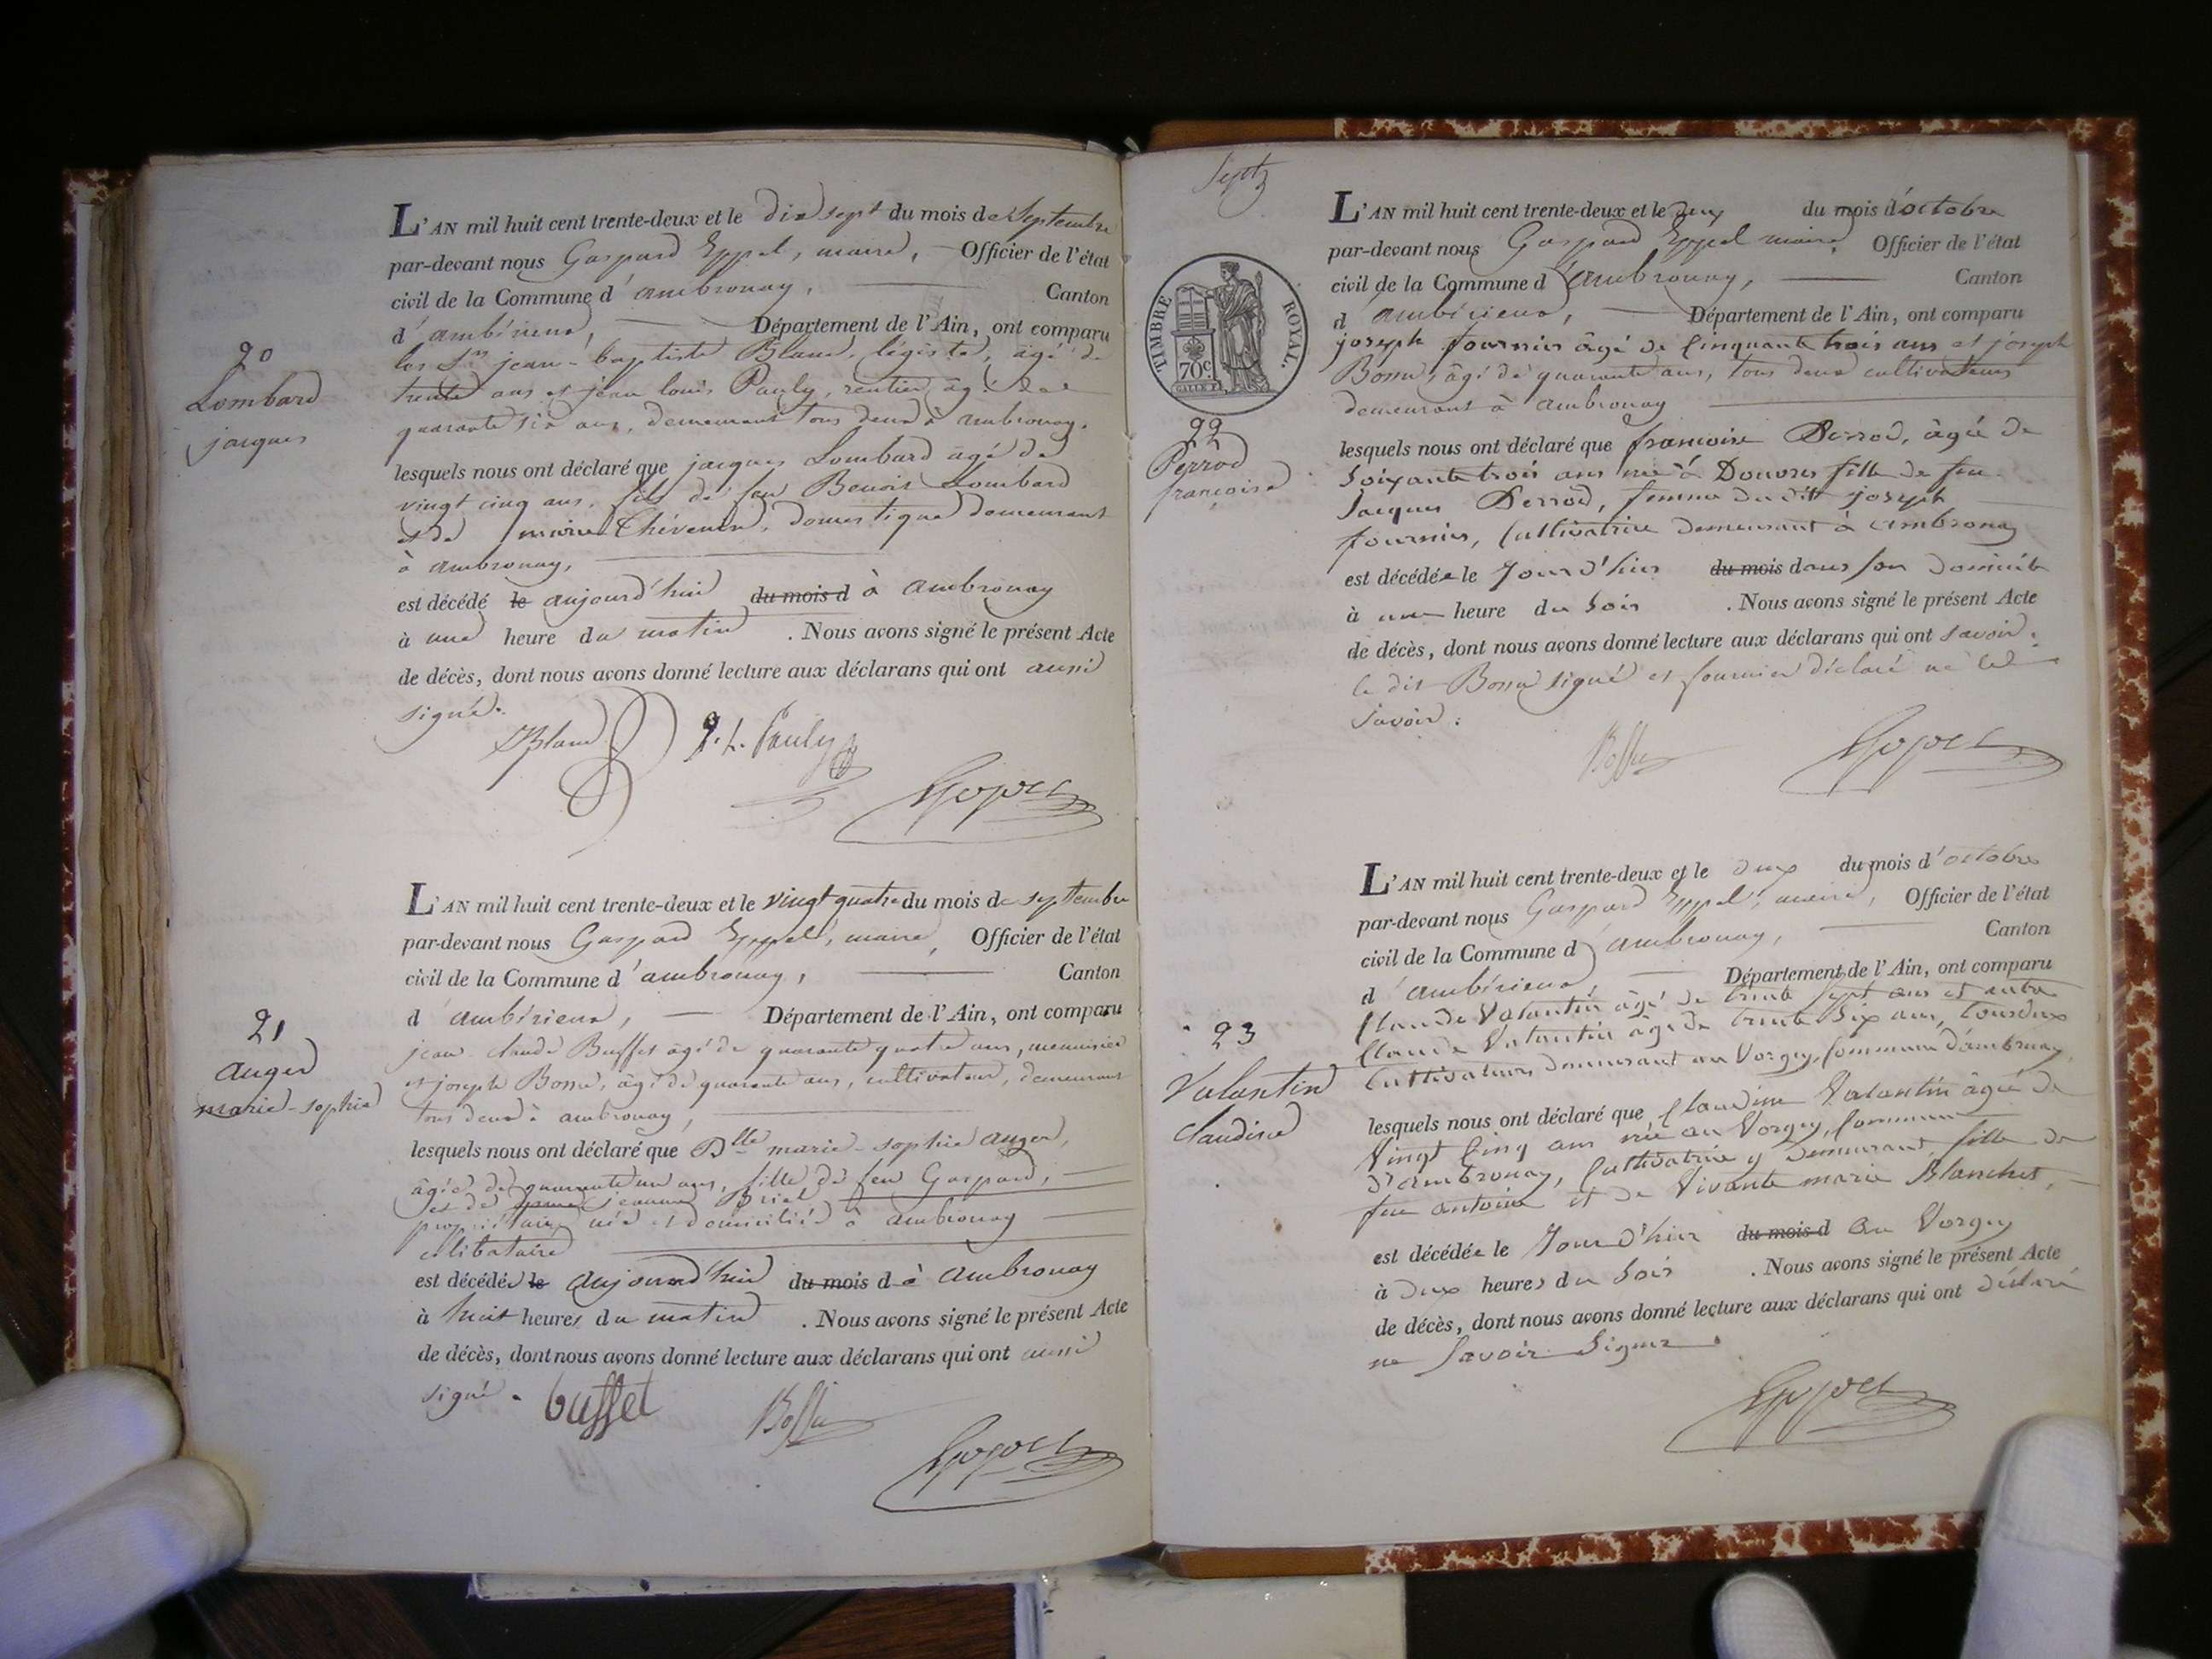 L'AN mil huit cent trente-deux et le dix sept du mois de Septembre
par-devant nous Gaspard Eppel, maire, Officier de l'état
civil de la Commune d'ambronay, Canton
d'ambérieux, Département de l'Ain, ont comparu
les Srs jean-baptiste Blanc, légiste, âgé de
trente ans et jean louis Pauly, rentier âgé de
quarante six ans, demeurant tous deux à ambronay.
20
Lombard
jacques
lesquels nous ont déclaré que jacques Lombard âgé de
vingt cinq ans, fils de feu Benoit Lombard
et de marie Thévenin, domestique demeurant
à ambronay,
est décédé le aujourd'hui du mois d à ambronay
à une heure du matin. Nous avons signé le présent Acte
de décès, dont nous avons donné lecture aux déclarans qui ont aussi
signé.
Blanc J. L. Pauly
Eppel
L'AN mil huit cent trente-deux et le vingt quatre du mois de septembre
par-devant nous Gaspard Eppel, maire, Officier de l'état
civil de la Commune d'ambronay, Canton
d'ambérieux, Département de l'Ain, ont comparu
jean claude Buffet âgé de quarante quatre ans, menuisier
et joseph Bossu, âgé de quarante ans, cultivateur, demeurant
tous deux à ambronay,
21
auger
marie-sophie
lesquels nous ont déclaré que Dlle marie-sophie auger,
âgée de quarante un ans, fille de feu Gaspard,
et de jeanne Briel
propriétaire, née et domiciliée à ambronay
célibataire
est décédée le aujourd'hui du mois d à ambronay
à huit heures du matin. Nous avons signé le présent Acte
de décès, dont nous avons donné lecture aux déclarans qui ont aussi
signé.
buffet Bossu
Eppel
Sept
TIMBRE ROYAL.
70c.
L'AN mil huit cent trente-deux et le deux du mois d'octobre
par-devant nous Gaspard Eppel maire, Officier de l'état
civil de la Commune d'ambronay, Canton
d'ambérieux, Département de l'Ain, ont comparu
joseph fournier âgé de Cinquante trois ans et joseph
Bossu, âgé de quarante ans, tous deux cultivateurs
demeurant à ambronay
22
Perrod
françoise
lesquels nous ont déclaré que françoise Perrod, âgée de
Soixante trois ans née à Douvres fille de feu
Jacques Perrod, femme du dit joseph
fournier, Cultivatrice demeurant à ambronay
est décédée le Jourd'hui du mois dans son domicile
à une heure du Soir. Nous avons signé le présent Acte
de décès, dont nous avons donné lecture aux déclarans qui ont savoir:
le dit Bossu signé et fournier déclaré ne le
Savoir:
Bossu Eppel
L'AN mil huit cent trente-deux et le deux du mois d'octobre
par-devant nous Gaspard Eppel, maire, Officier de l'état
civil de la Commune d'ambronay, Canton
d'ambérieux, Département de l'Ain, ont comparu
Claude Valantin âgé de trente Sept ans et autre
Claude Valantin âgé de trente Six ans, tous deux
Cultivateurs demeurant au Vorgey, Commune d'ambronay,
23
Valantin
Claudine
lesquels nous ont déclaré que Claudine Valantin âgée de
Vingt Cinq ans née au Vorgey, Commune
d'ambronay, Cultivatrice y demeurant, fille de
feu antoine et de Vivante marie Blanchet,
est décédée le Jourd'hui du mois d au Vorgey
à deux heures du Soir. Nous avons signé le présent Acte
de décès, dont nous avons donné lecture aux déclarans qui ont déclaré
ne Savoir Signer.
Eppel